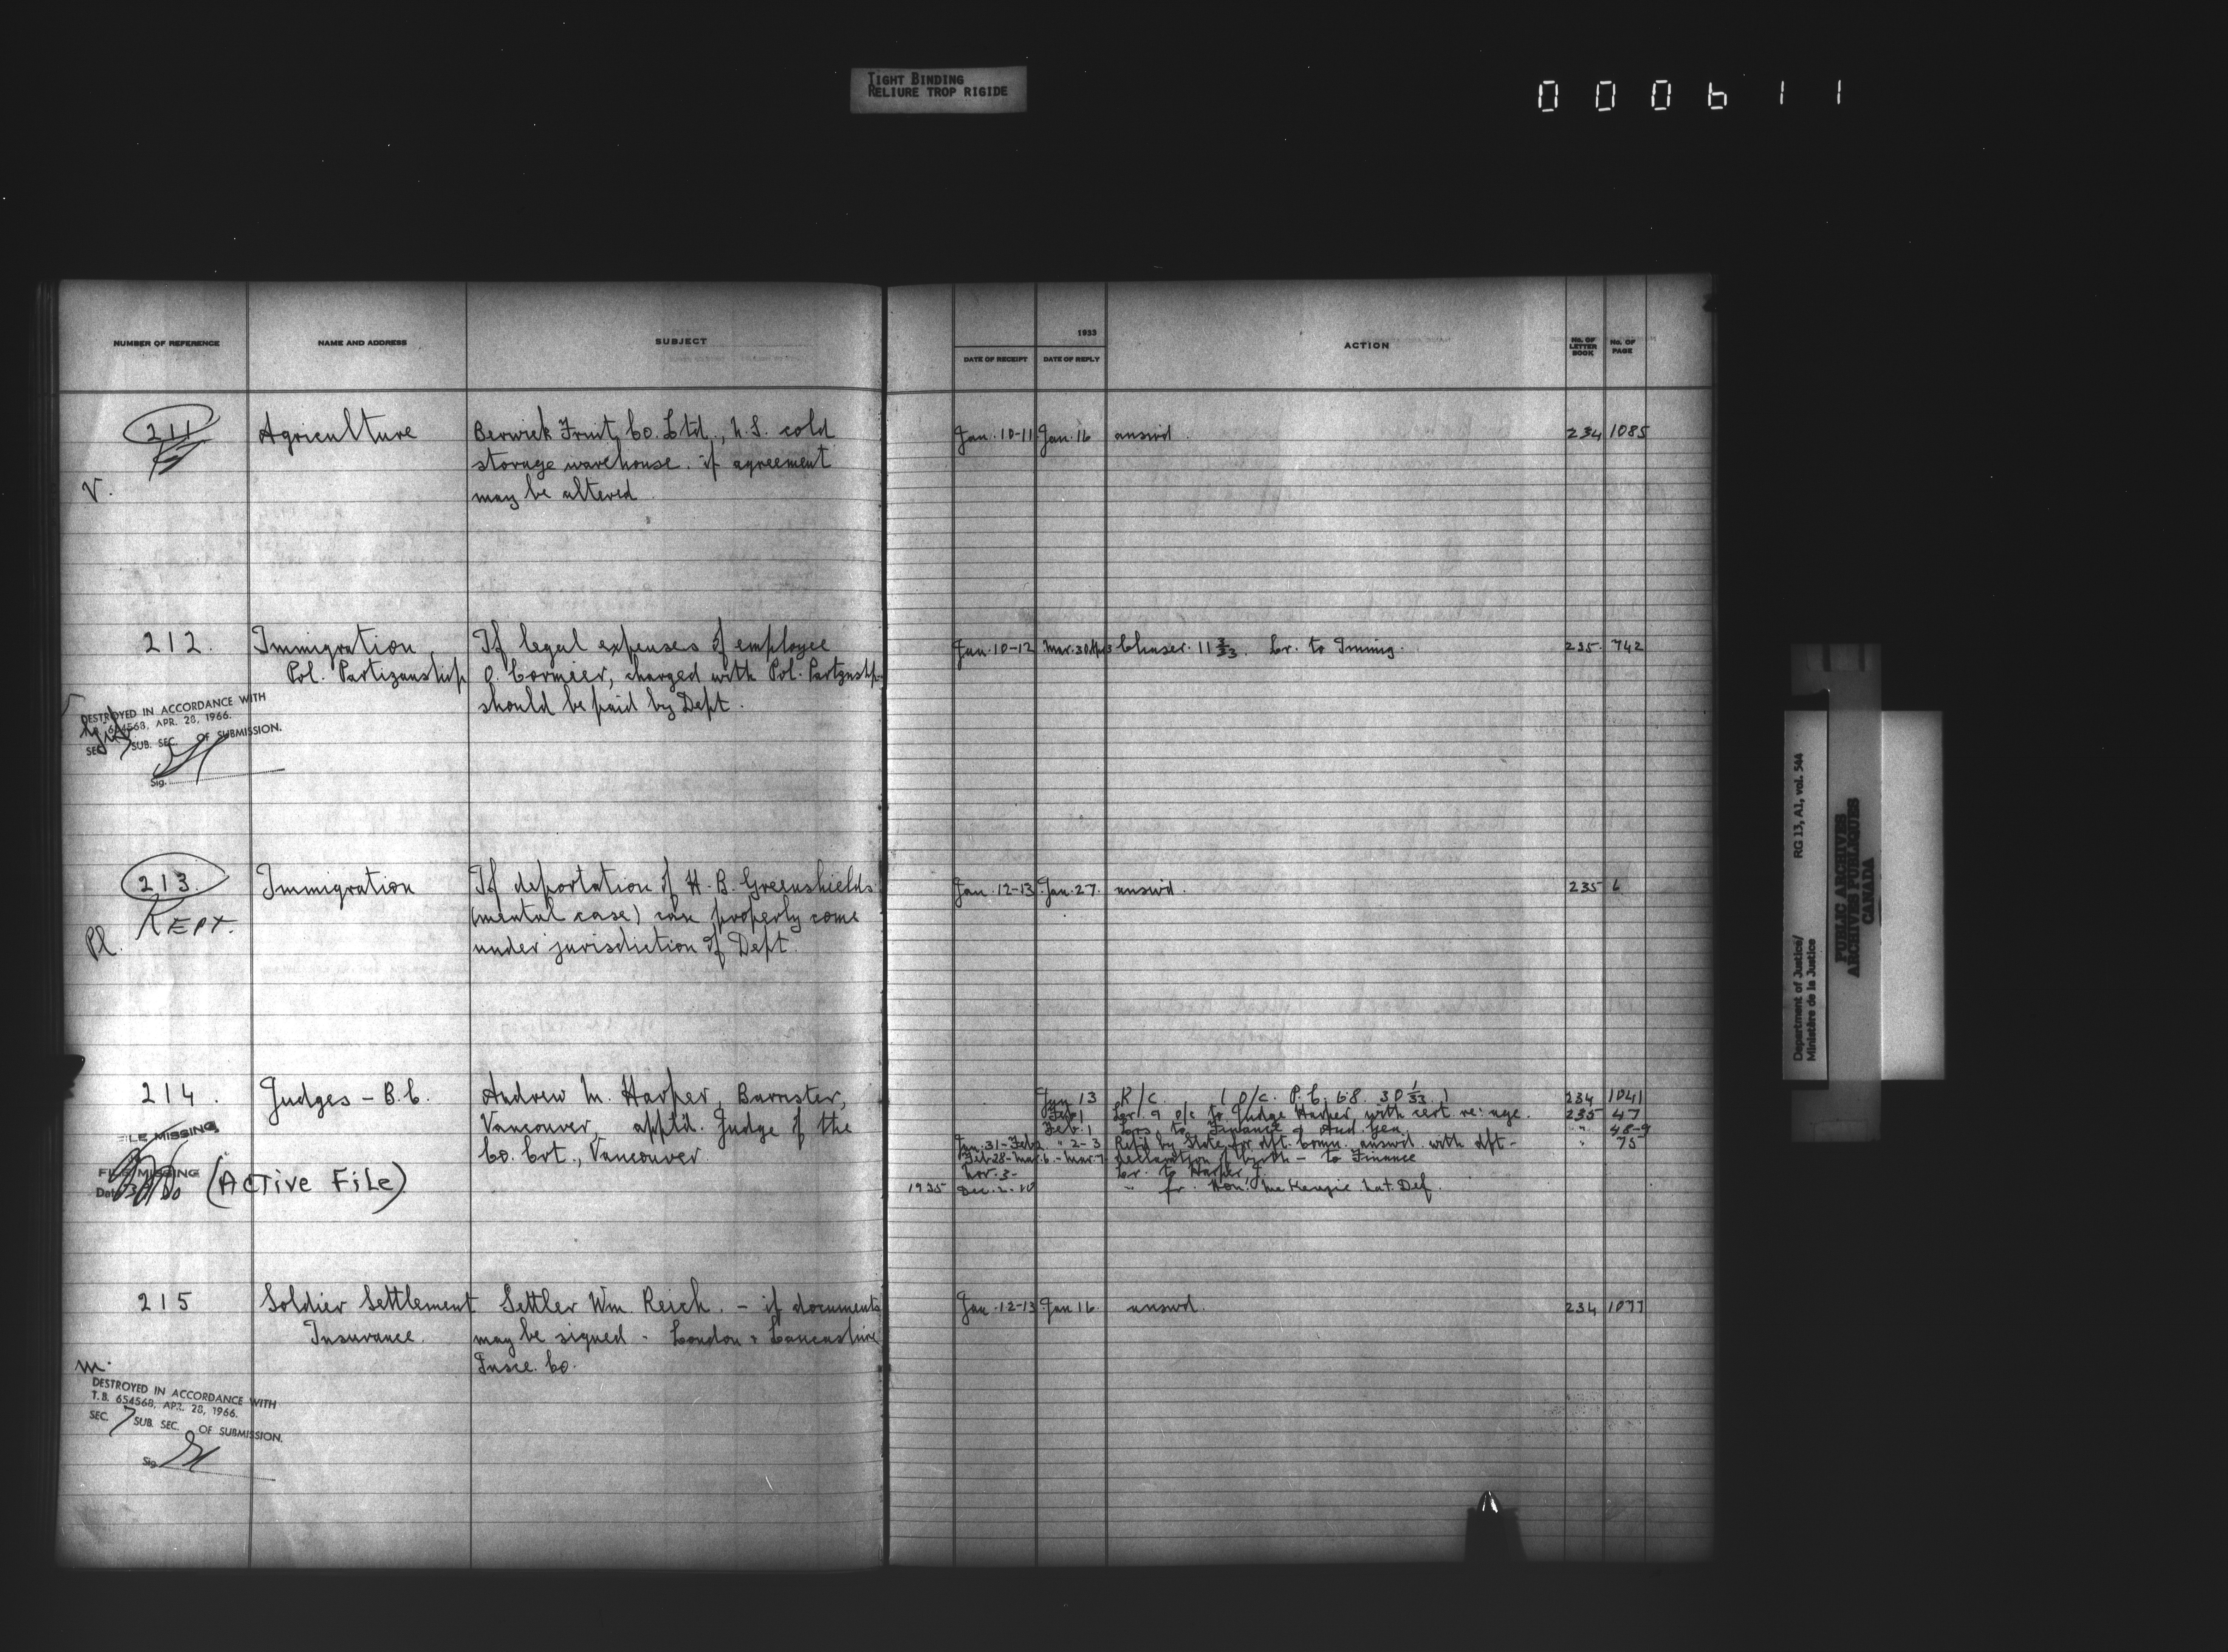 TIGHT BINDING
RELIURE TROP RIGIDE
000611
NUMBER OF REFERENCE NAME AND ADDRESS SUBJECT
1933
DATE OF RECEIPT DATE OF REPLY ACTION No. OF LETTER BOOK No. OF PAGE
211 Agriculture Berwick Fruit Co. Ltd., N.S. cold Jan. 10-11 Jan. 16 answd. 234 1085
storage warehouse. if agreement
V. may be altered
212. Immigration If legal expenses of employee Jan. 10-12 Mar. 30 Chaser. 11 3/33. Lr. to Immig. 235. 742
Pol. Partizanship O. Cormier, charged with Pol. Partznshp.
should be paid by Dept.
DESTROYED IN ACCORDANCE WITH
654568, APR. 28, 1966.
SEC. 7 SUB. SEC. OF SUBMISSION.
Sig.
213. Immigration If deportation of H. B. Greenshields Jan. 12-13 Jan. 27. answd. 235 6
KEPT. (mental case) can properly come
Pl. under jurisdiction of Dept.
214. Judges - B.C. Andrew M. Harper, Barrister, Jan 13 R/c. (O/c. P.C. 68. 30 1/33.) 234 1041
Vancouver, apptd. Judge of the Feb 1 Lr. & o/c to Judge Harper, with cert. re: age. 235 47
Feb. 1 Lrs. to Finance & Aud. Gen. " 48-9
Co. Crt., Vancouver Jan. 31-Feb 2. " 2-3 Ret'd by State for dft. Comn. answd. with dft- " 75
Feb 28-Mar. 6. - Mar. 7 declaration of birth - to Finance
FILE MISSING
FILE MISSING
Date
(ACTIVE FILE)
Nov. 3- Lr. to Harper J.
1935 Dec. 2-10 " fr. Hon. McKenzie Nat. Def.
215 Soldier Settlement Settler Wm. Reich. - if documents Jan. 12-13 Jan 16. answd. 234 1077
Insurance. may be signed - London & Lancashire
M. Insce. Co.
DESTROYED IN ACCORDANCE WITH
T.B. 654568, APR. 28, 1966.
SEC. 7 SUB. SEC. OF SUBMISSION.
Sig.
Department of Justice/ RG 13, A1, vol. 544
Ministère de la Justice
PUBLIC ARCHIVES
ARCHIVES PUBLIQUES
CANADA